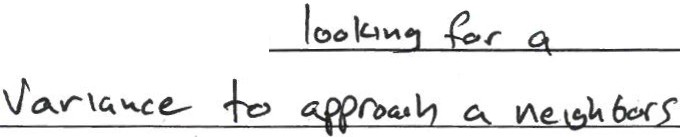 looking for a
Variance to approach a neighbors